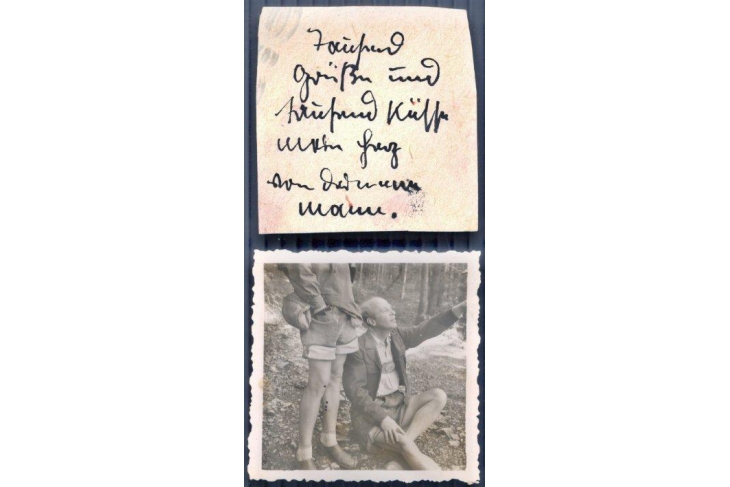 Tausend
Grüße und
tausend Küsse
mein Herz
von deinem
Mann.